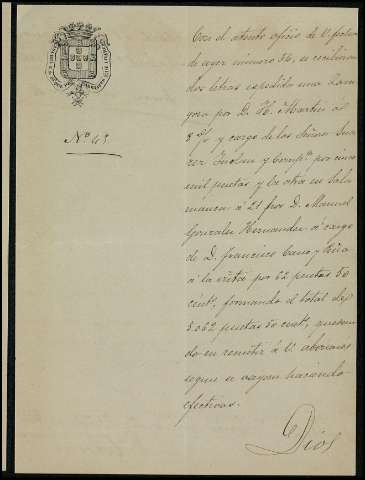 Nº 43
Con el atento oficio de V. fecha
de ayer número 56, se recibieron
dos letras expedida una Zamora
por D. H. Martin al
8 d/v y cargo de los Señores
y Compª por cinco
mil pesetas y la otra en Sala
manca á 21 por D. Manuel
Gonzalez Hernandez á cargo
de D. Francisco Cano y
á la vista por 62 pesetas 50
cent., formando el total de
5.062 pesetas 50 cent., quedan
do en remitir á V. abonares
segun se vayan haciendo
efectivas.
Dios